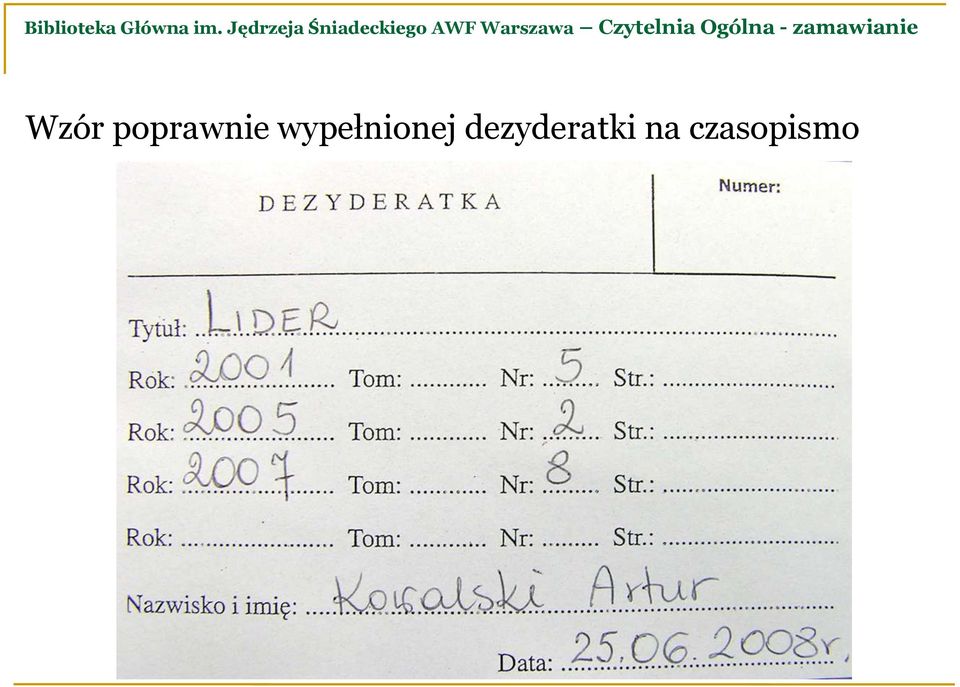 Biblioteka Główna im. Jędrzeja Śniadeckiego AWF Warszawa – Czytelnia Ogólna - zamawianie
Wzór poprawnie wypełnionej dezyderatki na czasopismo
DEZYDERATKA
Numer:
Tytuł: LIDER
Rok: 2001 Tom: ............ Nr: 5 Str.: ...........................
Rok: 2005 Tom: ............ Nr: 2 Str.: ...........................
Rok: 2007 Tom: ............ Nr: 8 Str.: ...........................
Rok: ........................ Tom: ............ Nr: ......... Str.: ...........................
Nazwisko i imię: Kowalski Artur
Data: 25.06.2008r.